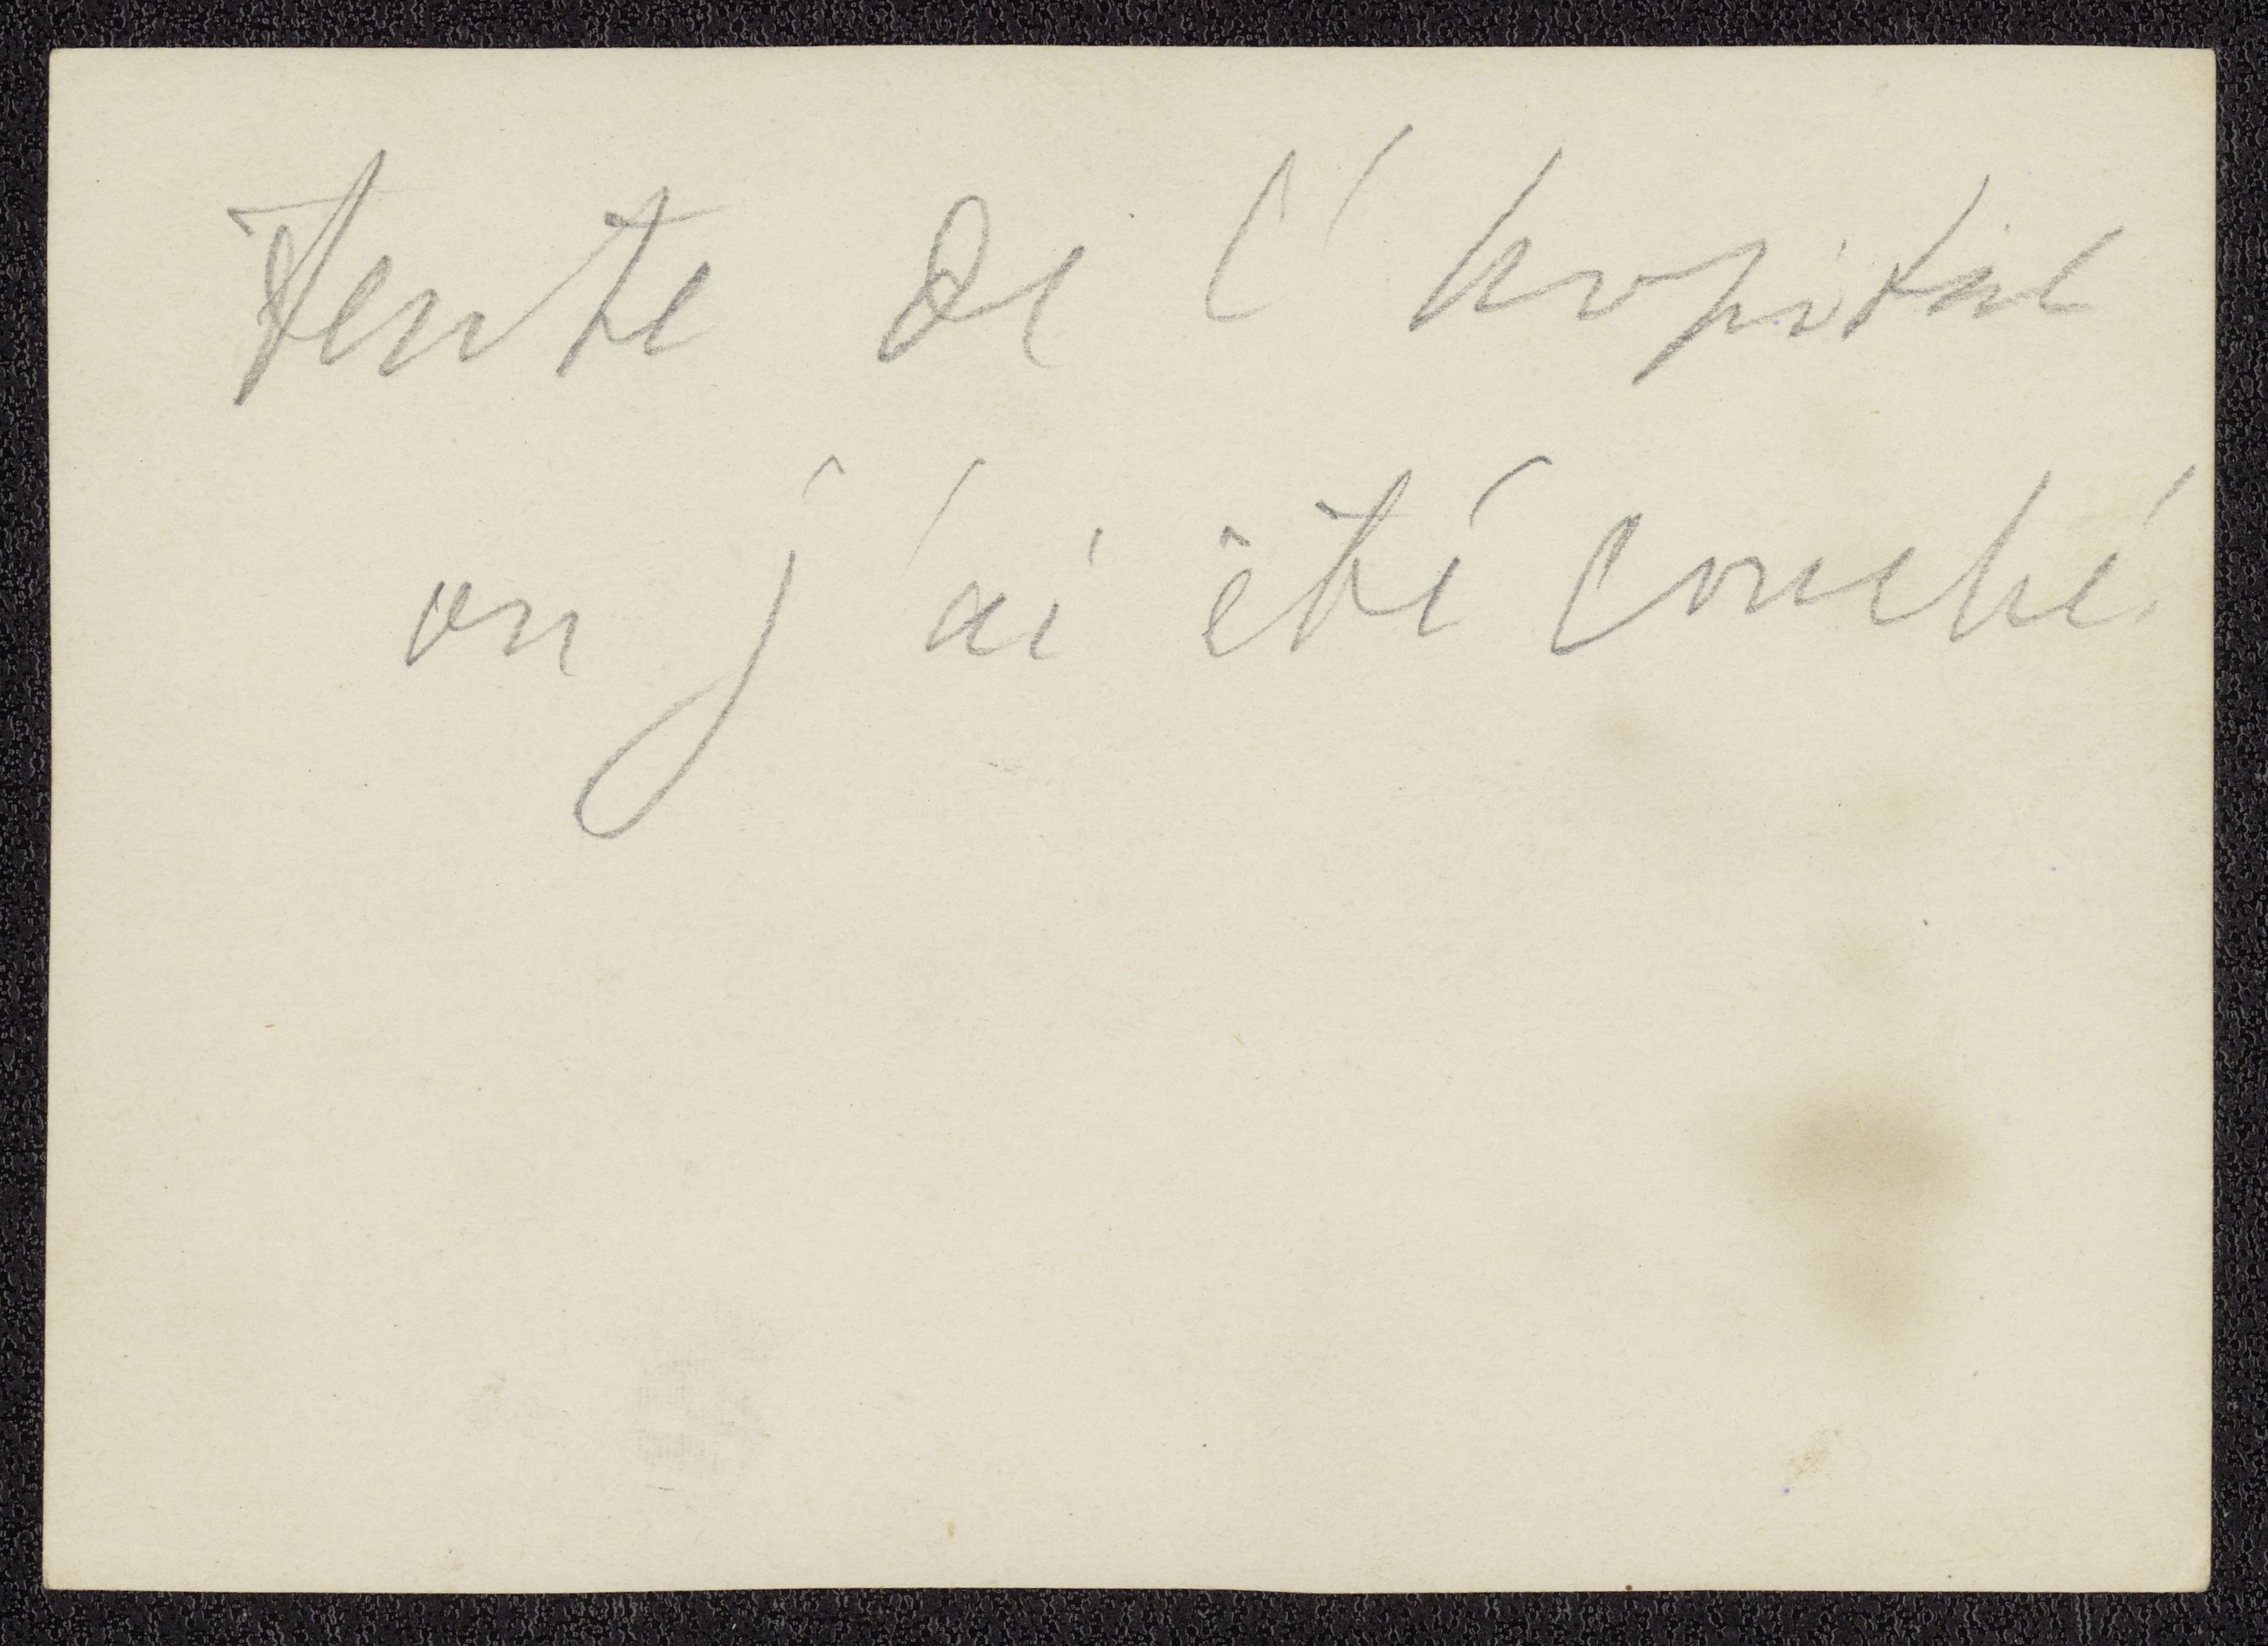 Tente de l'hopital
ou j'ai été couché